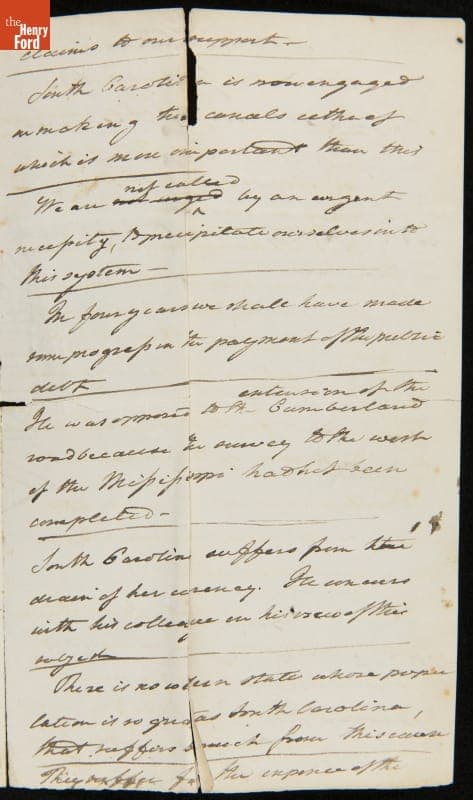 the
Henry
Ford
claims to our support –
South Carolina is now engaged
in making two canals either of
which is more important than this
not called
We are not urged by an urgent
necessity, to precipitate ourselves into
this system –
In four years we shall have made
some progress in the payment of the public
debt
extension of the
He was opposed to the Cumberland
road because the survey to the west
of the Missisippi had not been
completed –
South Carolina suffers from the
drain of her currency. He concurs
with his colleague in his view of this
subject
There is no state whose popu
lation is so great as South Carolina,
that suffers so much from this
They suffer for the expence of the